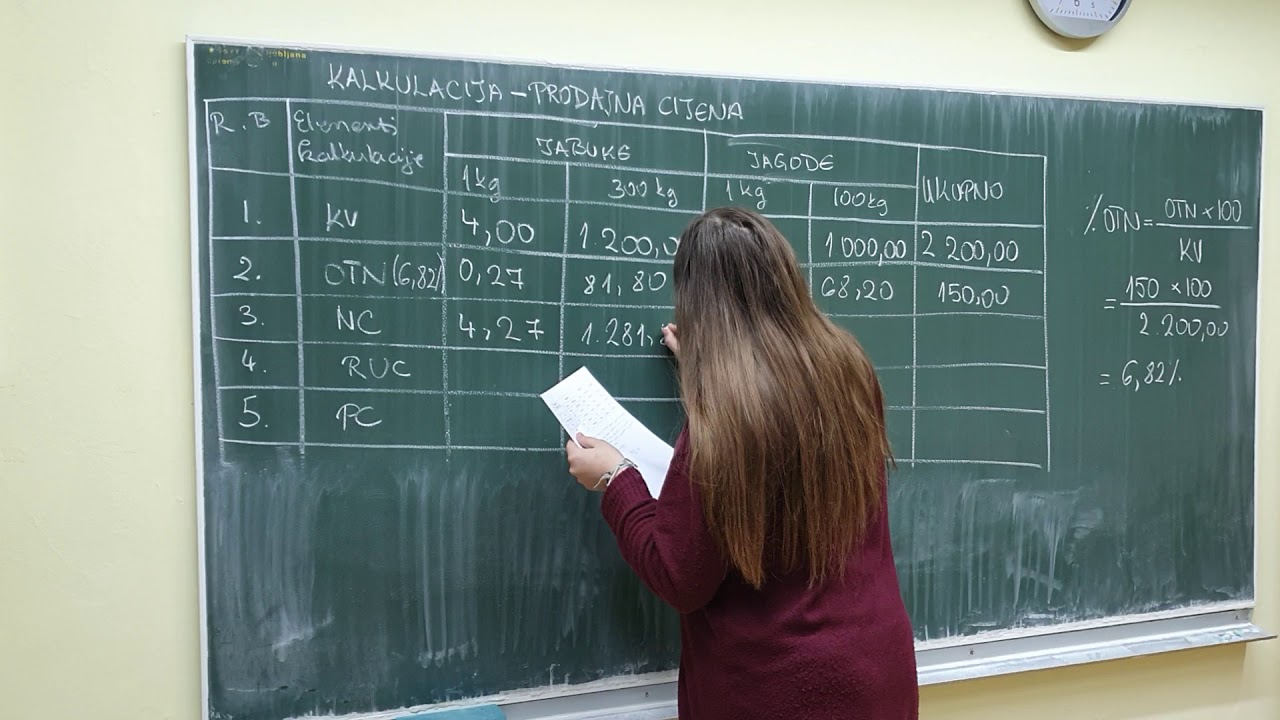 KALKULACIJA – PRODAJNA CIJENA
R.B Elementi kalkulacije JABUKE JAGODE UKUPNO
1kg 300kg 1kg 100kg
1. KV 4,00 1.200,0 1000,00 2 200,00
2. OTN(6,82) 0,27 81,80 68,20 150,00
3. NC 4,27 1.281,
4. RUC
5. PC
% OTN = OTN × 100
KV
= 150 × 100
2.200,00
= 6,82%